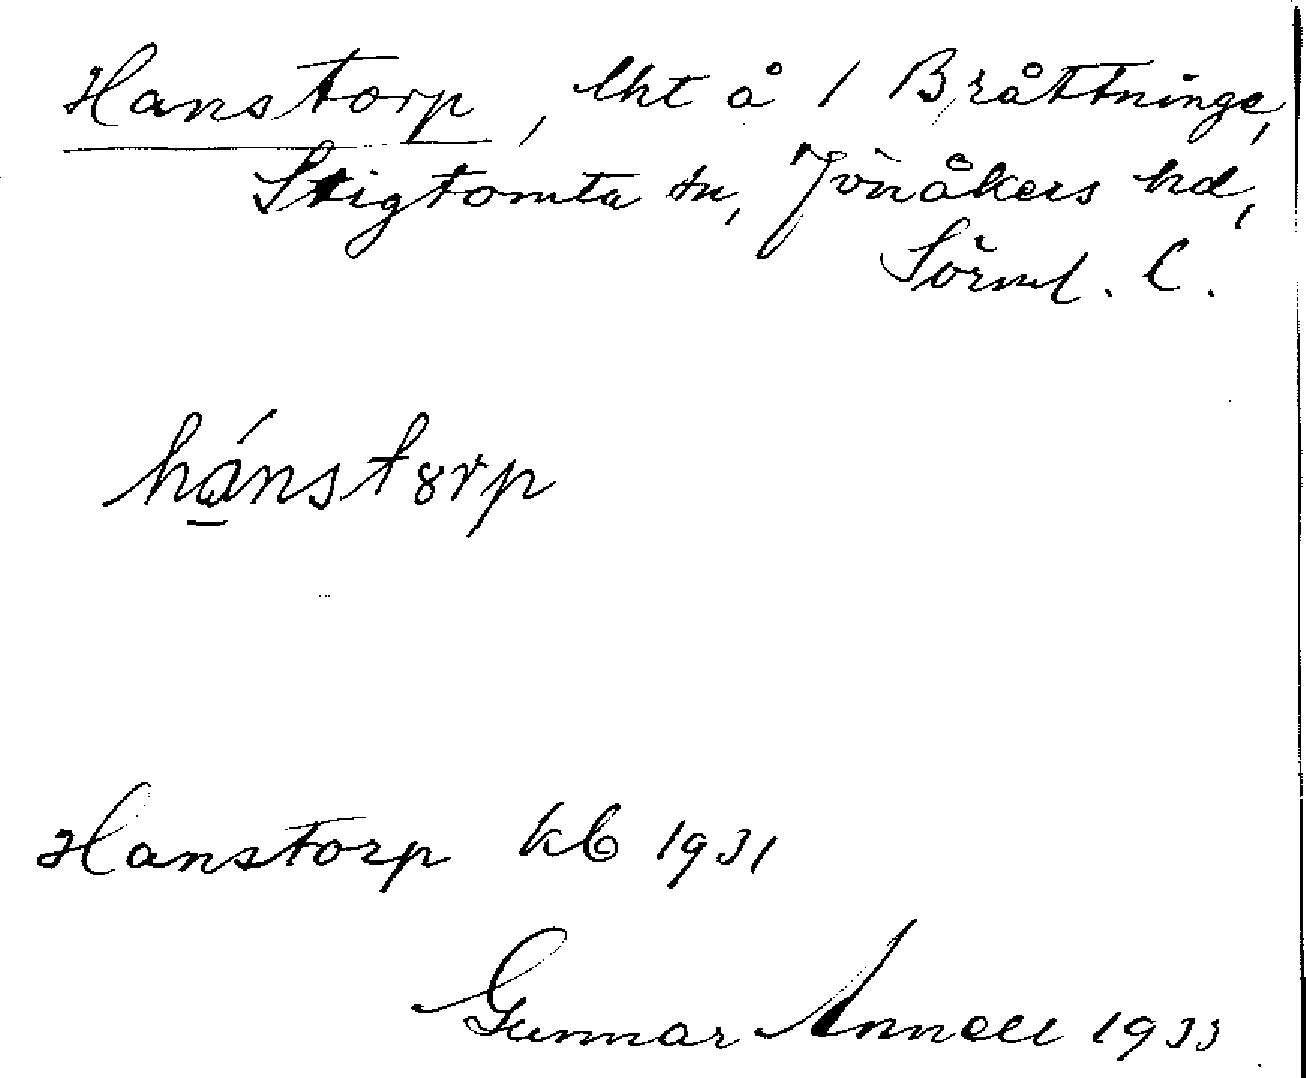 Hanstorp, lht å 1 Bråttninge,
Stigtomta sn, Jönåkers hd,
Sörml. l.
hánstorp
Hanstorp kb 1931
Gunnar Annell 1933